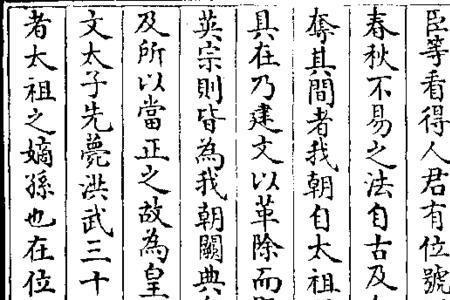 臣等看得人君有位號
春秋不易之法自古及
奪其間者我朝自太祖
具在乃建文以革除而
英宗則皆為我朝闕典
及所以當正之故為皇
文太子先薨洪武三十
者太祖之嫡孫也在位